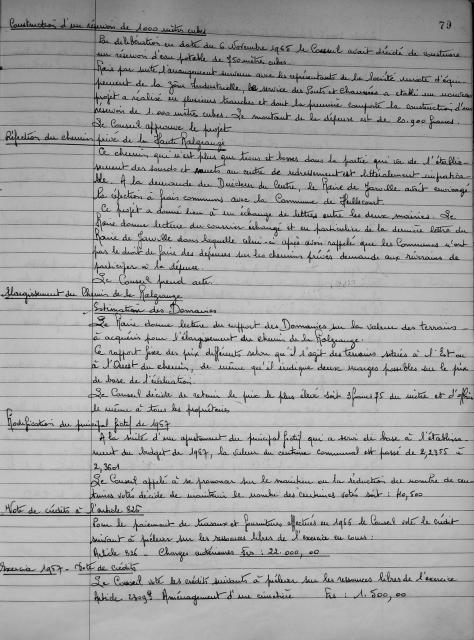 79
Construction d'un réservoir de 1000 mètres cubes
En délibération en date du 6 Novembre 1965 le Conseil avait décidé de construire
un réservoir d'eau potable de 850 mètres cubes.
Mais par suite l'arrangement survenu avec les représentants de la Société mixte d'équi-
pement de la Zone Industrielle, le service des Ponts et Chaussées a établi un nouveau
projet à réaliser en plusieurs tranches et dont la première comporte la construction d'un
réservoir de 1.000 mètres cubes. Le montant de la dépense est de 20.900 francs.
Le Conseil approuve le projet
Réfection du chemin privé de la Haute Malgrange
Ce chemin qui n'est plus que trous et bosses dans la partie qui va de l'établis-
sement des sourds et muets au centre de redressement est littéralement impratica-
ble. A la demande du Directeur du Centre, le Maire de Jarville avait envisagé
la réfection à frais communs avec la Commune de
Ce projet a donné lieu à un échange de lettres entre les deux mairies. Le
Maire donne lecture du courrier échangé et en particulier de la dernière lettre du
Maire de Jarville dans laquelle celui-ci après avoir rappelé que les Communes n'ont
pas le droit de faire des dépenses sur les chemins privés demande aux riverains de
participer à la dépense.
Le Conseil prend acte.
Elargissement du Chemin de la Malgrange
Estimation des Domaines
Le Maire donne lecture du rapport des Domaines sur la valeur des terrains
à acquérir pour l'élargissement du chemin de la Malgrange.
Ce rapport fixe des prix différents selon qu'il s'agit des terrains situés à l'Est ou
à l'Ouest du chemin, de même qu'il indique deux marges possibles sur le prix
de base de l'évaluation.
Le Conseil décide de retenir le prix le plus élevé soit 3 francs 75 du mètre et d'offrir
le même à tous les propriétaires
Modification du principal fictif de 1967
A la suite d'un ajustement du principal fictif qui a servi de base à l'établisse-
ment du budget de 1967, la valeur du centime communal est passée de 2,2355 à
2,3601
Le Conseil appelé à se prononcer sur le maintien ou la réduction du nombre de cen-
times votés décide de maintenir le nombre des centimes votés soit : 40,500
Vote de crédits à l'article 826
Pour le paiement de travaux et fournitures effectués en 1966 le Conseil vote le crédit
suivant à prélever sur les ressources libres de l'exercice en cours :
Article 826 - Charges antérieures Frs : 22.000,00
Exercice 1967 - Vote de crédits
Le Conseil vote les crédits suivants à prélever sur les ressources libres de l'exercice
Article Aménagement d'un cimetière Frs : 1.500,00